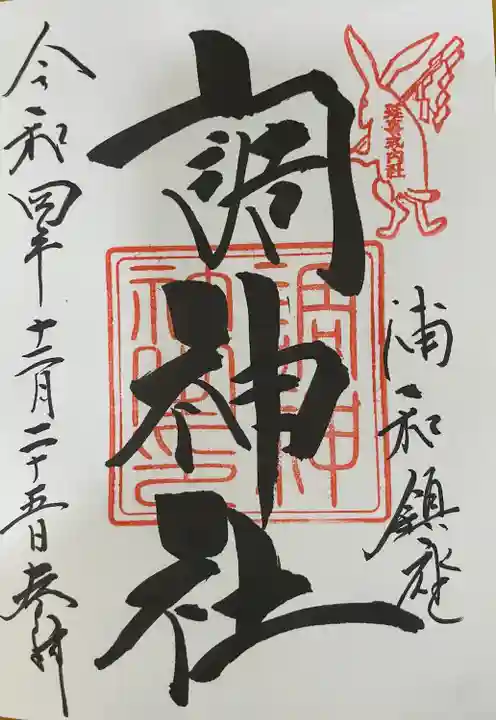 延喜式内社
浦和鎮座
調神社
令和四年十二月二十五日参拝